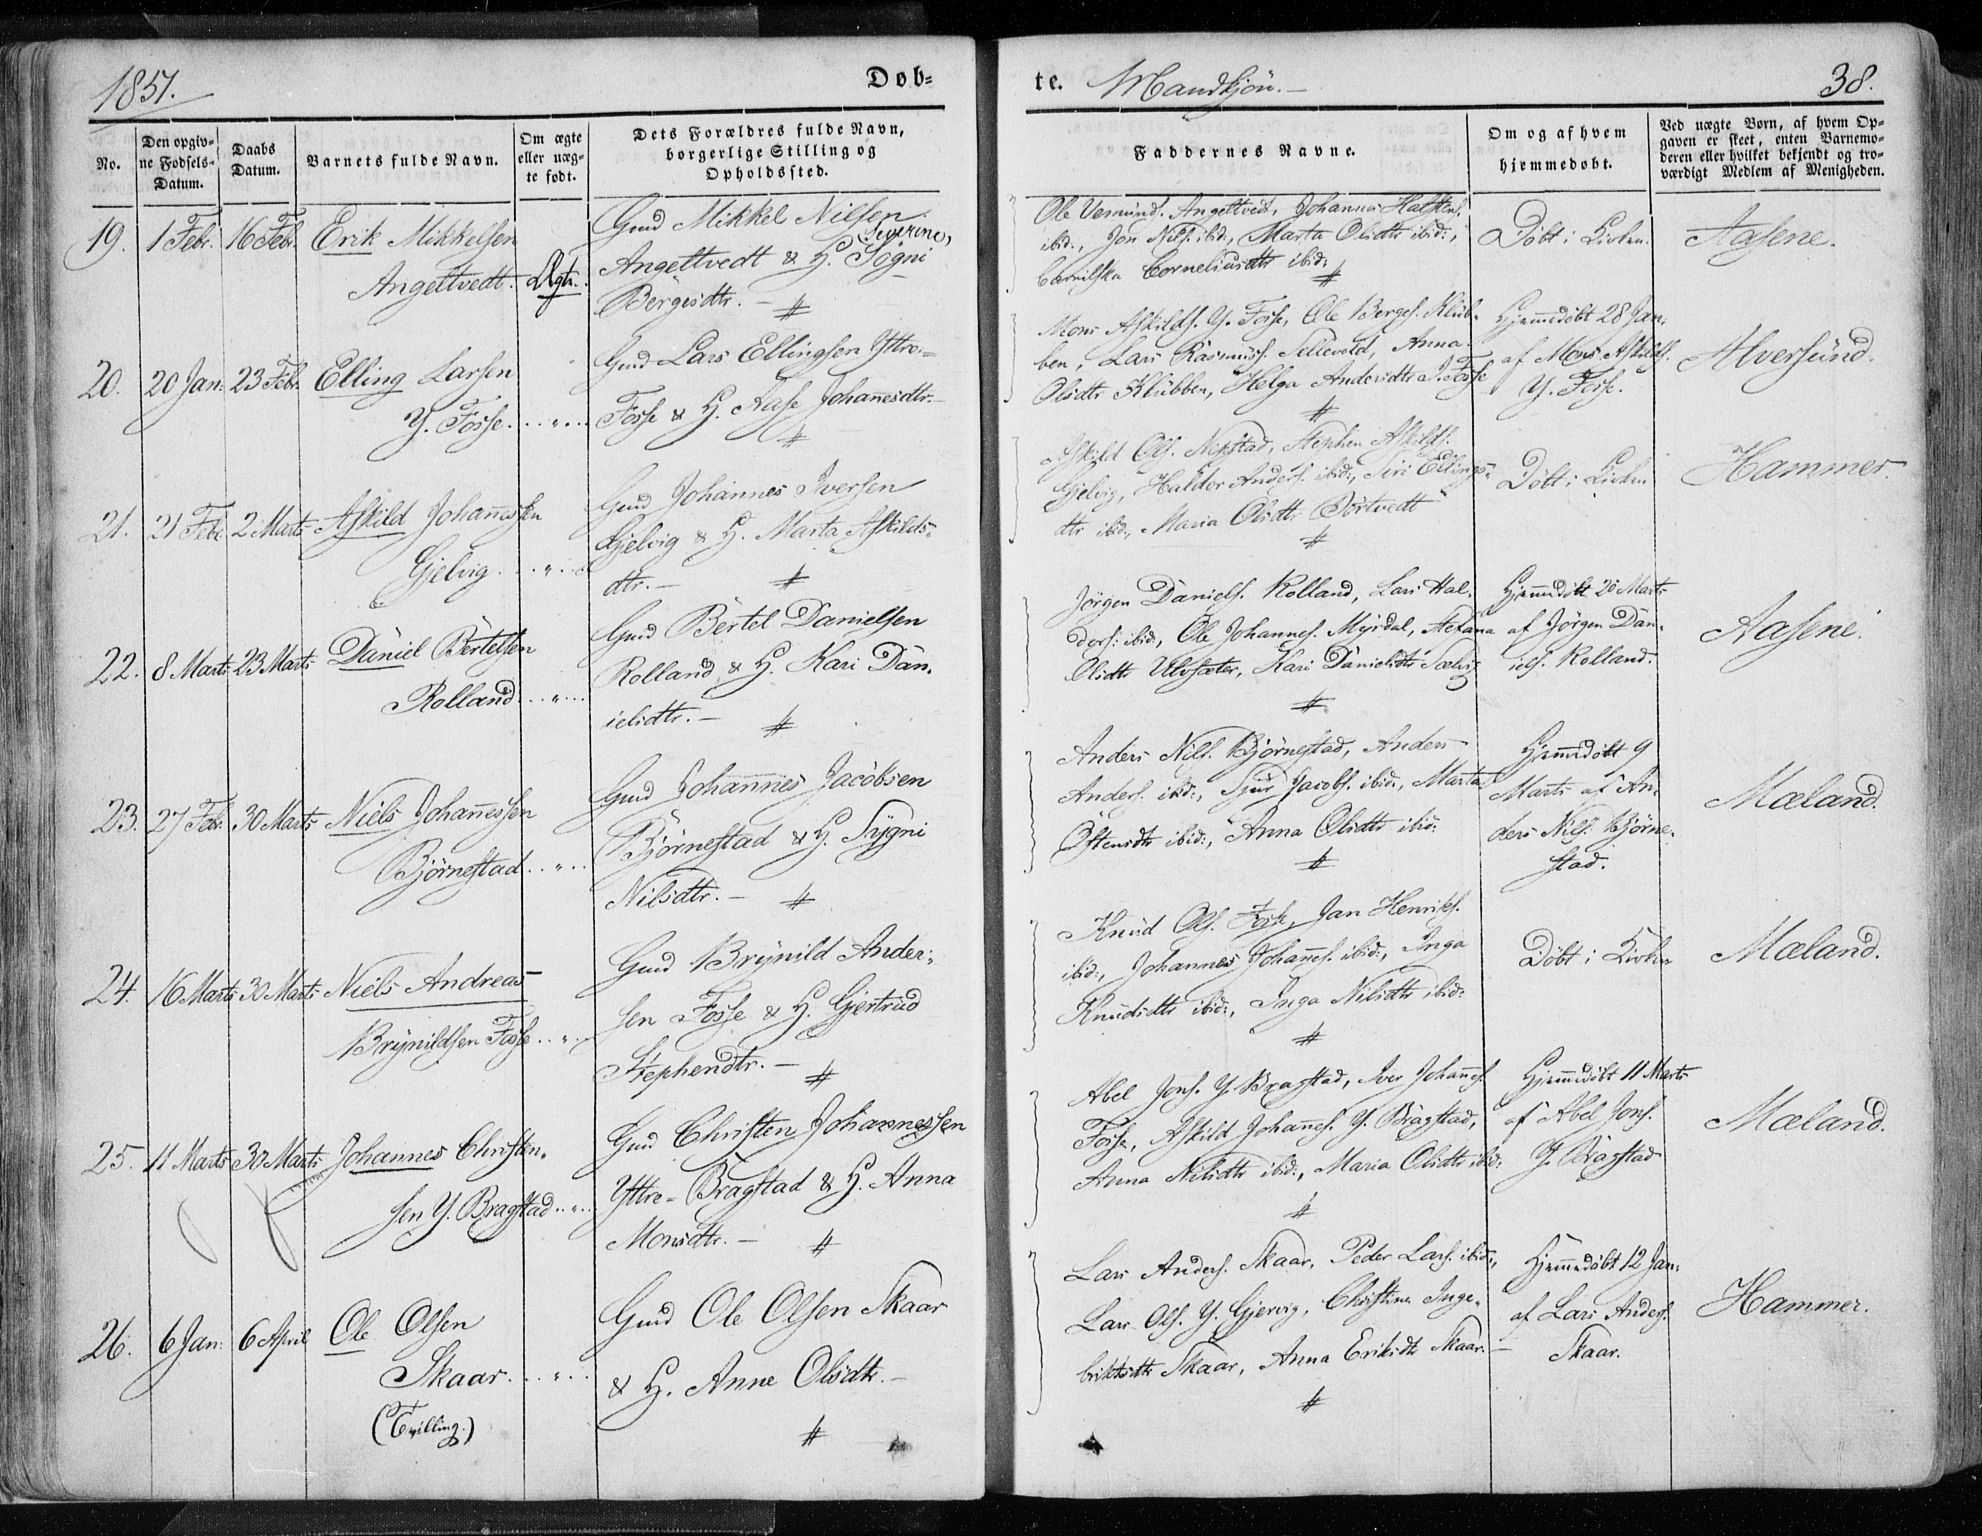 1851.
Döb=
te.
Mandkjön. —
38.
No.
Den opgiv=
ne Födsels=
Datum.
Daabs
Datum.
Barnets fulde Navn.
Om ægte
eller uæg=
te født.
Dets Forældres fulde Navn,
borgerlige Stilling og
Opholdssted.
Faddernes Navne.
Om og af hvem
hjemmedöbt.
Ved uægte Börn, af hvem Op=
gaven er skeet, enten Barnemo=
deren eller hvilket bekjendt og tro=
værdigt Medlem af Menigheden.
19. 1 Feb. 16 Feb. Erik Mikkelsen
Angeltvedt. Ægte.
Gmd Mikkel Nilsen
Severine,
Angeltvedt & H. Sögni
Börgesdtr. — #
Ole Vemund. Angeltvedt, Johannes Halstens.
ibid., Jon Nils. ibid., Marta Olsdtr ibid.,
Corneliusdtr ibid. #
Döbt i Kirken.
Aasene.
20. 20 Jan. 23 Feb. Elling Larsen
Y. Fosse. .. " ...
Gmd Lars Ellingsen Yttre=
Fosse & H. Aase Johannesdtr. —
#
Mons Askilds. Y. Fosse, Ole Börges. Klüb=
ben, Lars Rasmuss. Anna
Olsdtr Klübben, Helga Andersdtr Y. Fosse
#
Hjemmedöbt 28 Jan:
af Mons Askilds.
Y. Fosse.
Alversünd.
21. 21 Feb. 2 Marts Askild Johannessen
Gjelvig. .. " ..
Gmd Johannes Iversen
Gjelvig & H. Marta Askilds=
dtr. — #
Askild Ols. Nepstad, Stephen Askilds.
Gjelvig, Haldor Anders. ibid., Siri Ellings=
dtr ibid., Maria Olsdtr Börtvedt
#
Döbt i Kirken
Hammer.
22. 8 Marts 23 Marts Daniel Bertelsen
Rolland. .. " ...
Gmd Bertel Danielsen
Rolland & H. Kari Dan=
ielsdtr. — #
Jörgen Daniels. Rolland, Lars Hal=
dors. ibid., Ole Johannes. Myrdal,
Olsdtr Ulvsæter, Kari Danielsdtr Sælvig
#
Hjemmedöbt 20 Marts
af Jörgen Dan=
iels. Rolland.
Aasene.
23. 27 Feb. 30 Marts Niels Johannessen
Björnestad .. " ...
Gmd Johannes Jacobsen
Björnestad & H. Sygni
Nilsdtr. — #
Anders Nils. Björnestad, Anders
Anders. ibid., Sjur Jacobs. ibid., Marta
Östensdtr ibid., Anna Olsdtr ibid.
#
Hjemmedöbt 9
Marts af An=
ders Nils. Björne=
stad.
Mæland.
24. 16 Marts 30 Marts Niels Andreas
Brynildsen Fosse .. " ..
Gmd Brynild Ander=
sen Fosse & H. Gjertrud
Stephendtr. — #
Knud Ols. Fosse, Jan Henriks.
ibid., Johannes Johannes. ibid., Inga
Knudsdtr ibid., Inga Nilsdtr ibid.
#
Döbt i Kirken
Mæland.
25. 11 Marts 30 Marts Johannes Christen=
sen Y. Bragstad .. " ..
Gmd Christen Johannessen
Yttre= Bragstad & H. Anna
Monsdtr. — #
Abel Jons. Y. Bragstad, Iver Johannes.
Fosse, Askild Johannes. Y. Bragstad,
Anna Nilsdtr ibid., Maria Olsdtr ibid.
#
Hjemmedöbt 11 Marts
af Abel Jons.
Y. Bragstad
Mæland.
26. 6 Jan. 6 April Ole Olsen
Skaar. .. " ..
(Tvilling.)
Gmd Ole Olsen Skaar
& H. Anne Olsdtr. —
#
Lars Anders. Skaar, Peder Lars. ibid.,
Lars Ols. Y. Gjervig, Christina Inge=
briktsdtr Skaar, Anna Eriksdtr Skaar. —
#
Hjemmedöbt 12 Jan:
af Lars Anders.
Skaar.
Hammer.